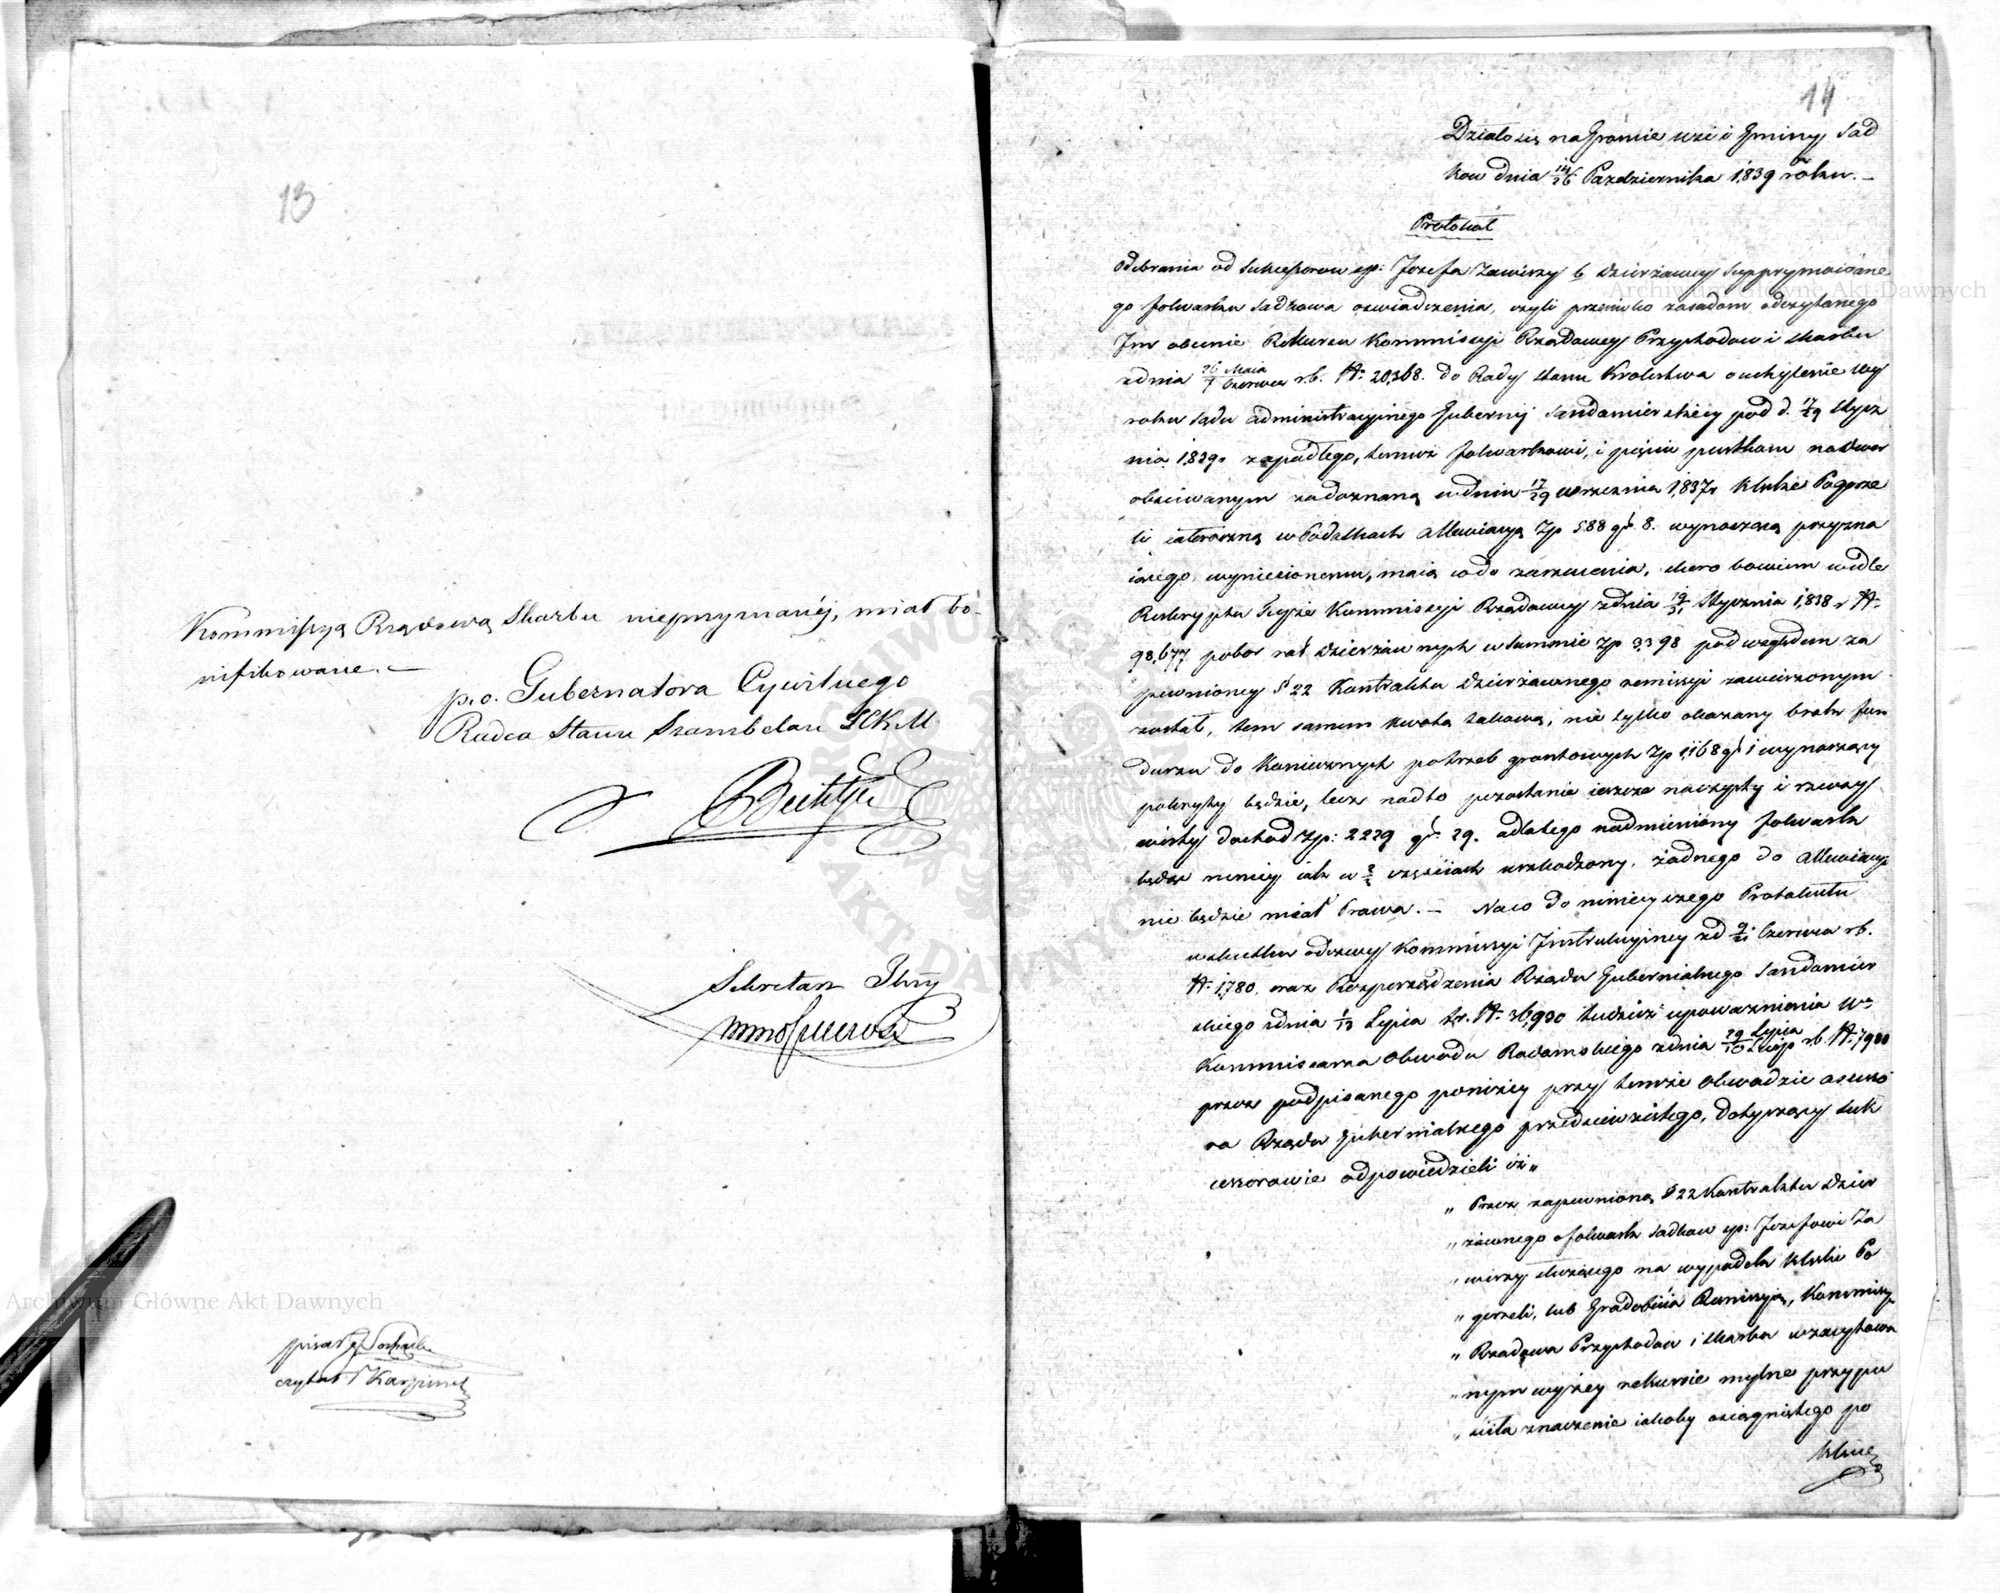 13
Kommissyą Rządową Skarbu nieprzyznanéj, miał bo-
nifikowane. —
p.o. Gubernatora Cywilnego
Radca Stanu Szambelan JCKM
Sekretarz Jlny
pisał
czytał
14
Działo się na Gromie wsi i Gminy Sad
kow dnia 14/26 Pazdziernika 1,839 roku. —
Protokół
odebrania od Sukcessorow sp: Jozefa Zawiszy b. dzierżawcy Supprymowane
go folwarku Sadkowa oswiadczenia, czyli przeciwko zasadom odczytanego
Im obecnie Rekursu Kommissyi Rządowey Przychodow i Skarbu
z dnia 26 Maia/7 Czerwca r.b. N: 20,368. do Rady Stanu Krolestwa o uchylenie wy
roku Sądu administracyinego Gubernij Sandomierskiey pod d. 17/29 Stycz
nia 1,839 r. zapadłego, temuż folwarkowi, i pięciu pustkom na dwor
obsiewanym za doznaną w dniu 17/29 września 1,837 r. klęskę Pogorze
li w Podatkach allewiacyą Zp 588 gr. 8. wynoszącą przyzna
iącego, wyniesionemu, maią co do zarzucenia, skoro bowiem wedle
Reskryptu Teyże Kommissyi Rządowey z dnia 19/31 Stycznia 1,838 r. N:
98,677 pobor rat dzierżawnych w Summie Zp 3,398 pod względem za
pewnioney § 22 Kontraktu dzierżawnego remissyi zawieszonym
został, tem samem kwotą takową, nie tylko okazany brak fun
duszu do koniecznych potrzeb gruntowych Zp 1,168 gr 1 wynoszący
pokryty będzie, lecz nadto pozostanie ieszcze naczysty i rzeczy
wisty dochod Zp: 2229 gr. 29. a dlatego nadmieniony folwark
będąc mniey iak w 2/3 częściach uszkodzony, żadnego do allewiacyi
nie będzie miał Prawa. — Na co do ninieyszego Protokułu
w skutku odezwy Kommissyi Instrukcyiney z d 9/21 Czerwca r.b.
N: 1,780. oraz Rozporządzenia Rządu Gubernialnego Sandomier
skiego z dnia 1/13 Lipca t.r. N: 36,930 tudzież upoważnienia Wo
Kommissarza Obwodu Radomskiego z dnia 29 Lipca/10 Sierp r.b. N: 7900
przez podpisanego poniżey przy temże Obwodzie asesso
ra Rządu Gubernialnego przedsiewziętego, dotyczący Suk
cessorowie odpowiedzieli iż „
„ Przez zapewnioną § 22 Kontraktu Dzier
„ żawnego o folwark Sadkow sp: Jozefowi Za
„ wiszy służącego na wypadek klęski Po
„ gorzeli, lub Gradobicia Remissyą, Kommissya
„ Rządowa Przychodow i Skarbu w zacytowa
„ nym wyżey rekursie mylne przypu
„ ściła znaczenie iakoby osiągniętego po
klęsce
Archiwum Główne Akt Dawnych
Archiwum Główne Akt Dawnych
ARCHIWUM GŁÓWNE AKT DAWNYCH